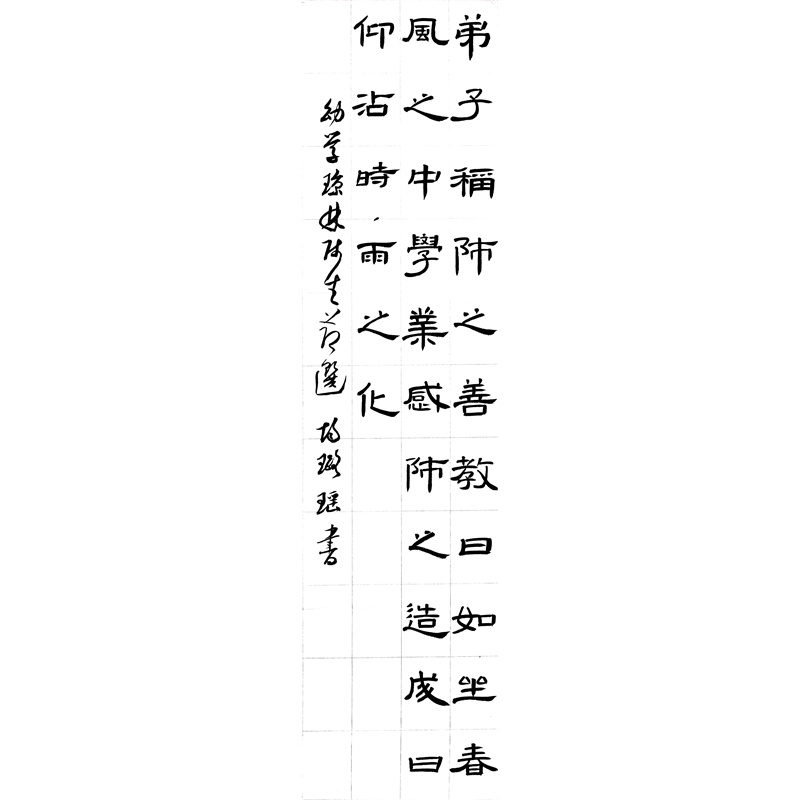 弟子稱師之善教曰如坐春
風之中學業感師之造成曰
仰沾時雨之化
幼学琼林师生节選 楊璐瑶書